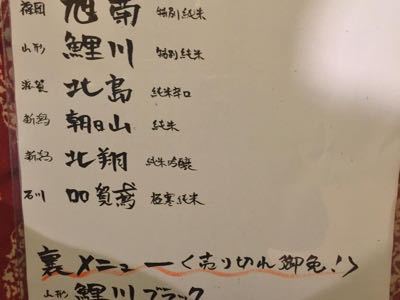 旭菊 特別純米
山形 鯉川 特別純米
滋賀 北島 純米辛口
新潟 朝日山 純米
新潟 北翔 純米吟醸
石川 加賀鳶 極寒純米
裏メニュー〈売り切れ御免!〉
山形 鯉川ブラック